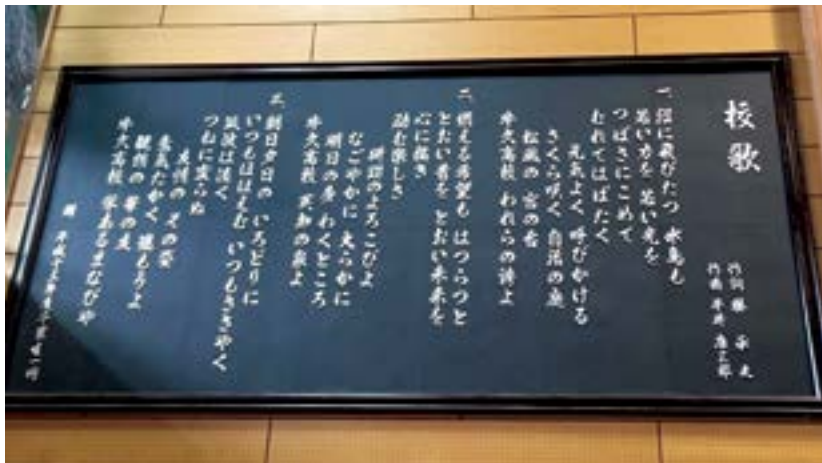 校歌
作詞 藤 
作曲 平井 康三郎
一、沼に飛びたつ 水鳥も
若い力を 若い光を
つばさにこめて
むれてはばたく
元気よく 呼びかける
さくら咲く 自治の庭
松風の 窓の台
牛久高校 われらの誇よ
二、燃える希望も はつらつと
とたい着を とおい未来を
心に描き
励む楽しさ
研究のよろこびよ
なごやかに 大らかに
明日の夢 わくところ
牛久高校 英知の泉よ
三、朝日夕日の いろどりに
いつもほほえむ いつもささやく
筑波は清く
つねに変らね
友情の その姿
意気たかく 讃もうよ
牛久高校 栄あるまなびや